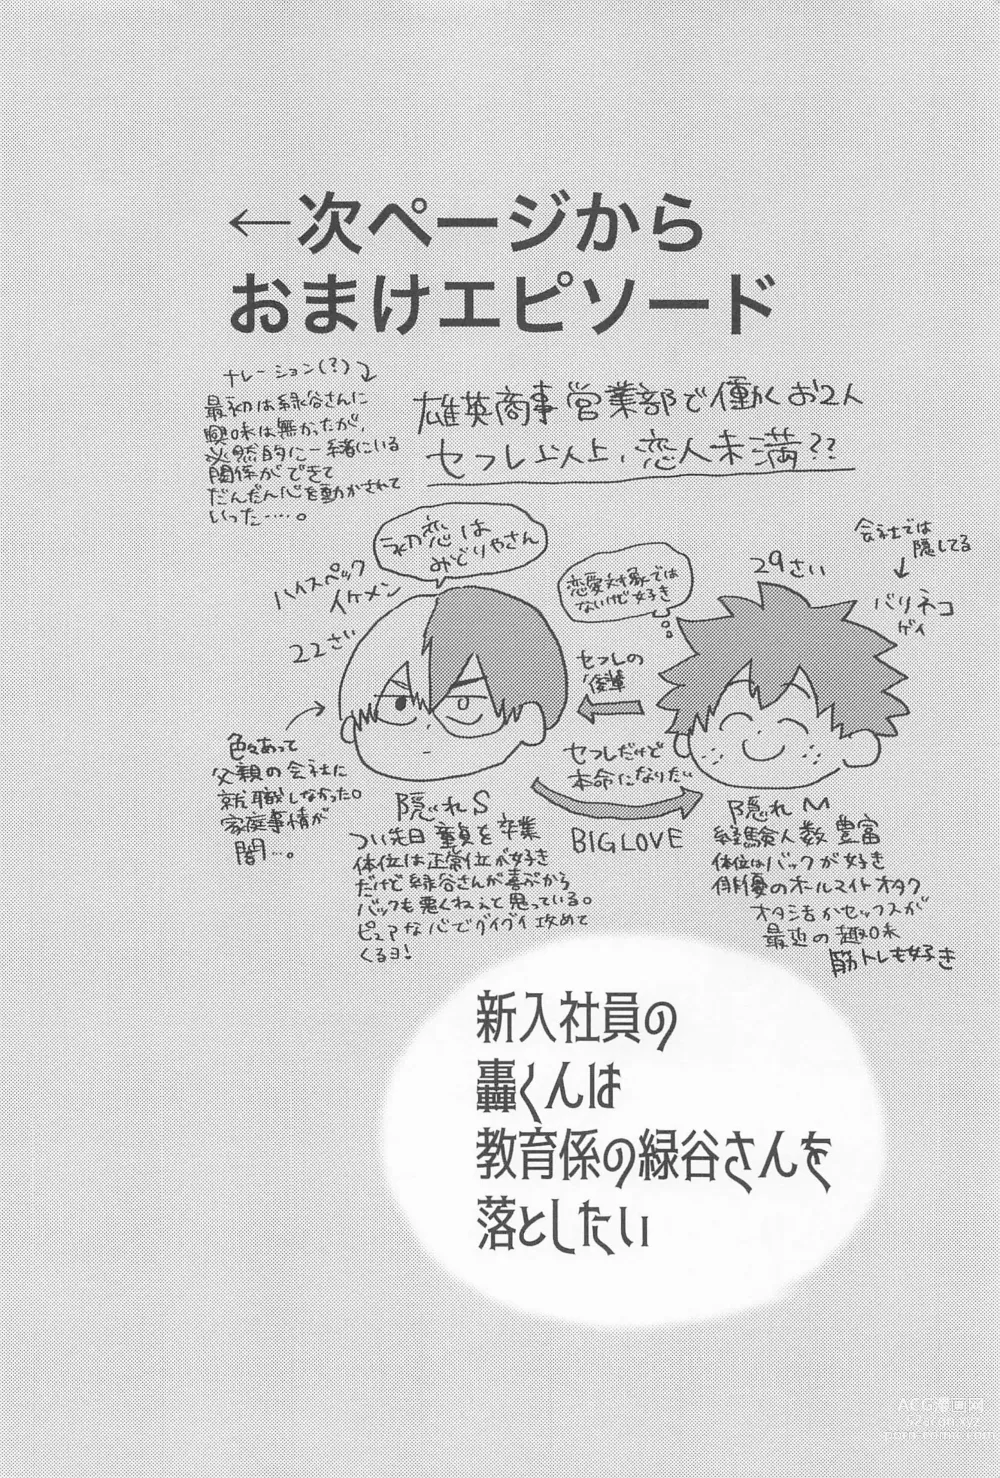 ←次ページから
おまけエピソード
ナレーション(?)
最初は緑谷さんに
興味は無かったが、
必然的に一緒にいる
関係ができて
だんだん心を動かされて
いった……。
雄英商事営業部で働くお2人
セフレ以上、恋人未満??
初恋は
みどりやさん
ハイスペック
イケメン
22さい
恋愛対象では
ないけど好き
29さい
会社では
隠してる
バリネコ
ゲイ
セフレの
後輩
セフレだけど
本命になりたい
BIG LOVE
色々あって
父親の会社に
就職しなかった。
家庭事情が
闇…。
隠れS
つい先日童貞を卒業
体位は正常位が好き
だけど緑谷さんが喜ぶから
バックも悪くねぇと思っている。
ピュアな心でグイグイ攻めて
くるヨ!
隠れM
経験人数豊富
体位はバックが好き
俳優のオールマイトオタク
オタ活かセックスが
最近の趣味
筋トレも好き
新入社員の
轟くんは
教育係の緑谷さんを
落としたい
ACG漫画网
52acon.xyz
porn-comic.com